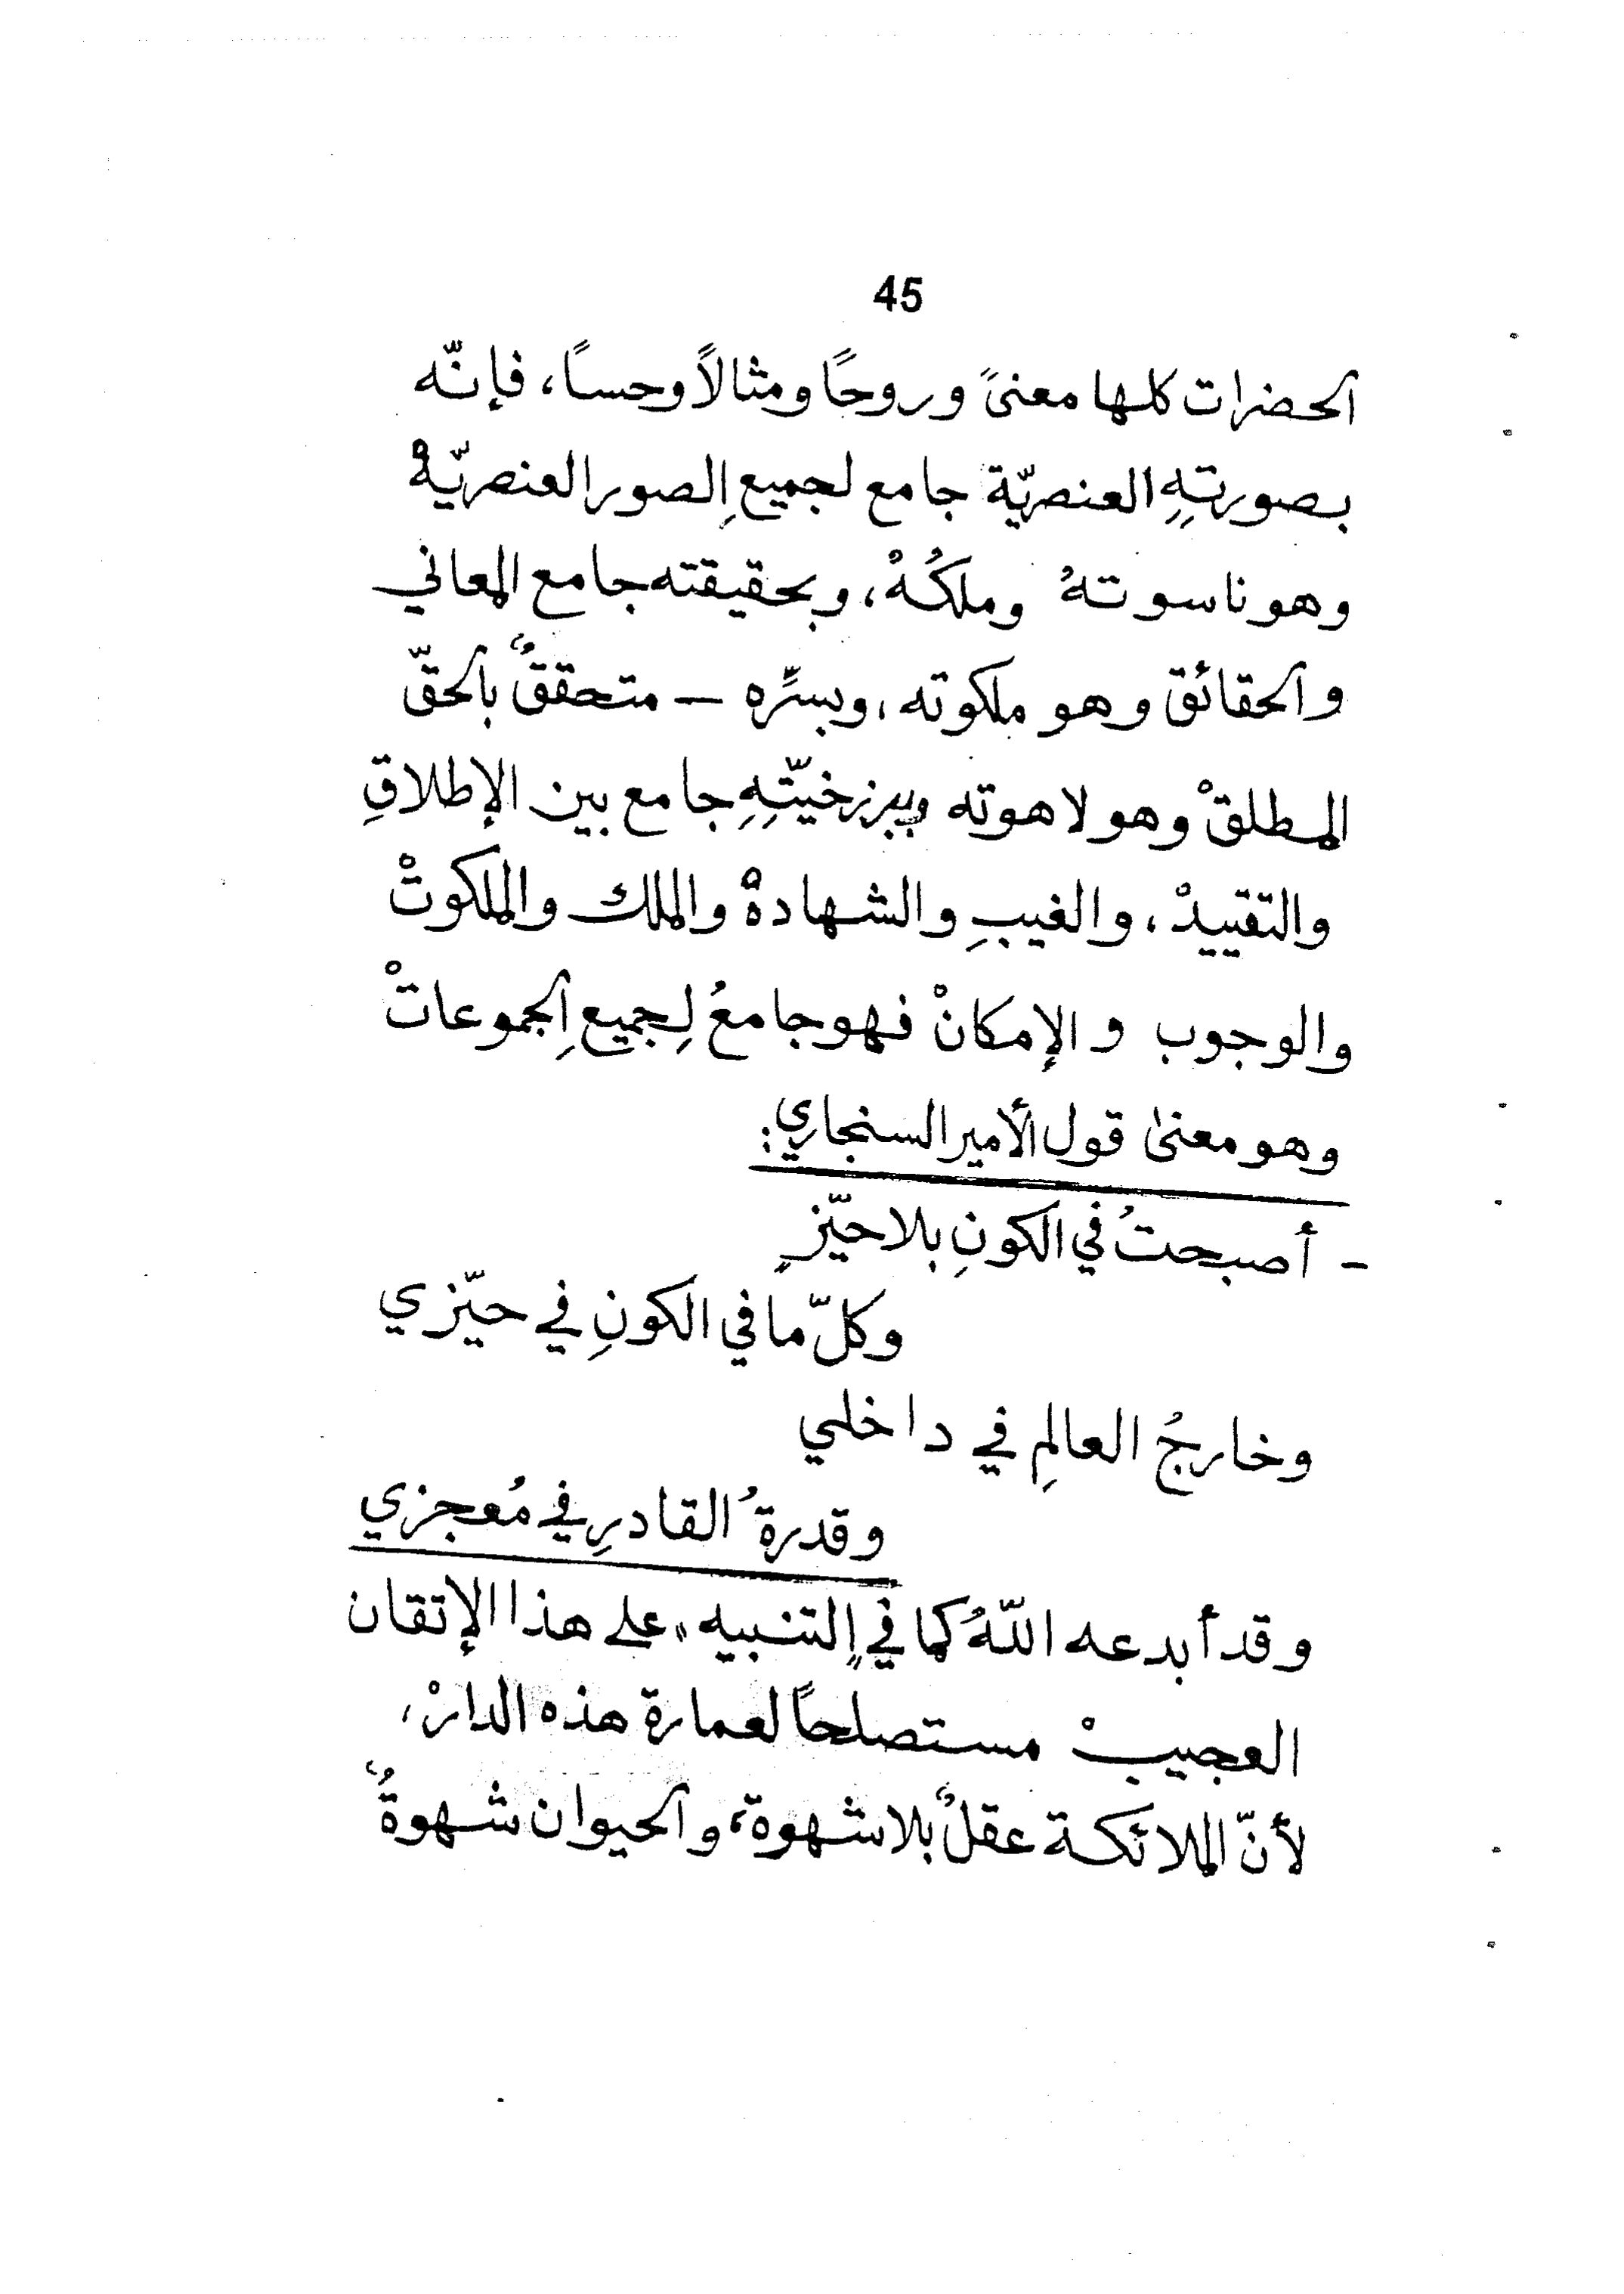 45
الحضرات كلها معنىً وروحًا ومثالاً وحساً، فإنّه
بصورتهِ العنصريّة جامع لجميعِ الصور العنصريّهْ
وهو ناسوتهُ وملكُهْ، وبحقيقته جامع المعاني
والحقائق وهو ملكوته، وبسرِّه — متحققٌ بالحقّ
المطلقْ وهو لاهوته وببرزخيّتِهِ جامع بين الإطلاقِ
والتقييدْ، والغيبِ والشهادهْ والملك والملكوتْ
والوجوب والإمكانْ فهو جامعُ لِجميعِ الجموعاتْ
وهو معنىٰ قول الأمير السنجاري:
- أصبحتُ في الكونِ بلا حيّزٍ
وكلّ ما في الكونِ في حيّزي
وخارجُ العالمِ في داخلي
وقدرةُ القادرِ في مُعجزي
وقد أبدعه اللّهُ كما في "التنبيه" على هذا الإتقان
العجيبْ مستصلحاً لعمارة هذه الدارْ،
لأنّ الملائكة عقلٌ بلا شهوة، والحيوان شهوةٌ